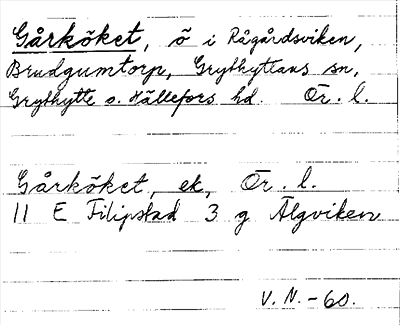 Gårköket, ö i Rågårdsviken,
Brudgumtorp, Grythyttans sn,
Grythytte o. Hällefors hd. Ör. l.
Gårköket, ek, Ör. l.
11 E Filipstad 3 g Älgviken
V. N. -60.